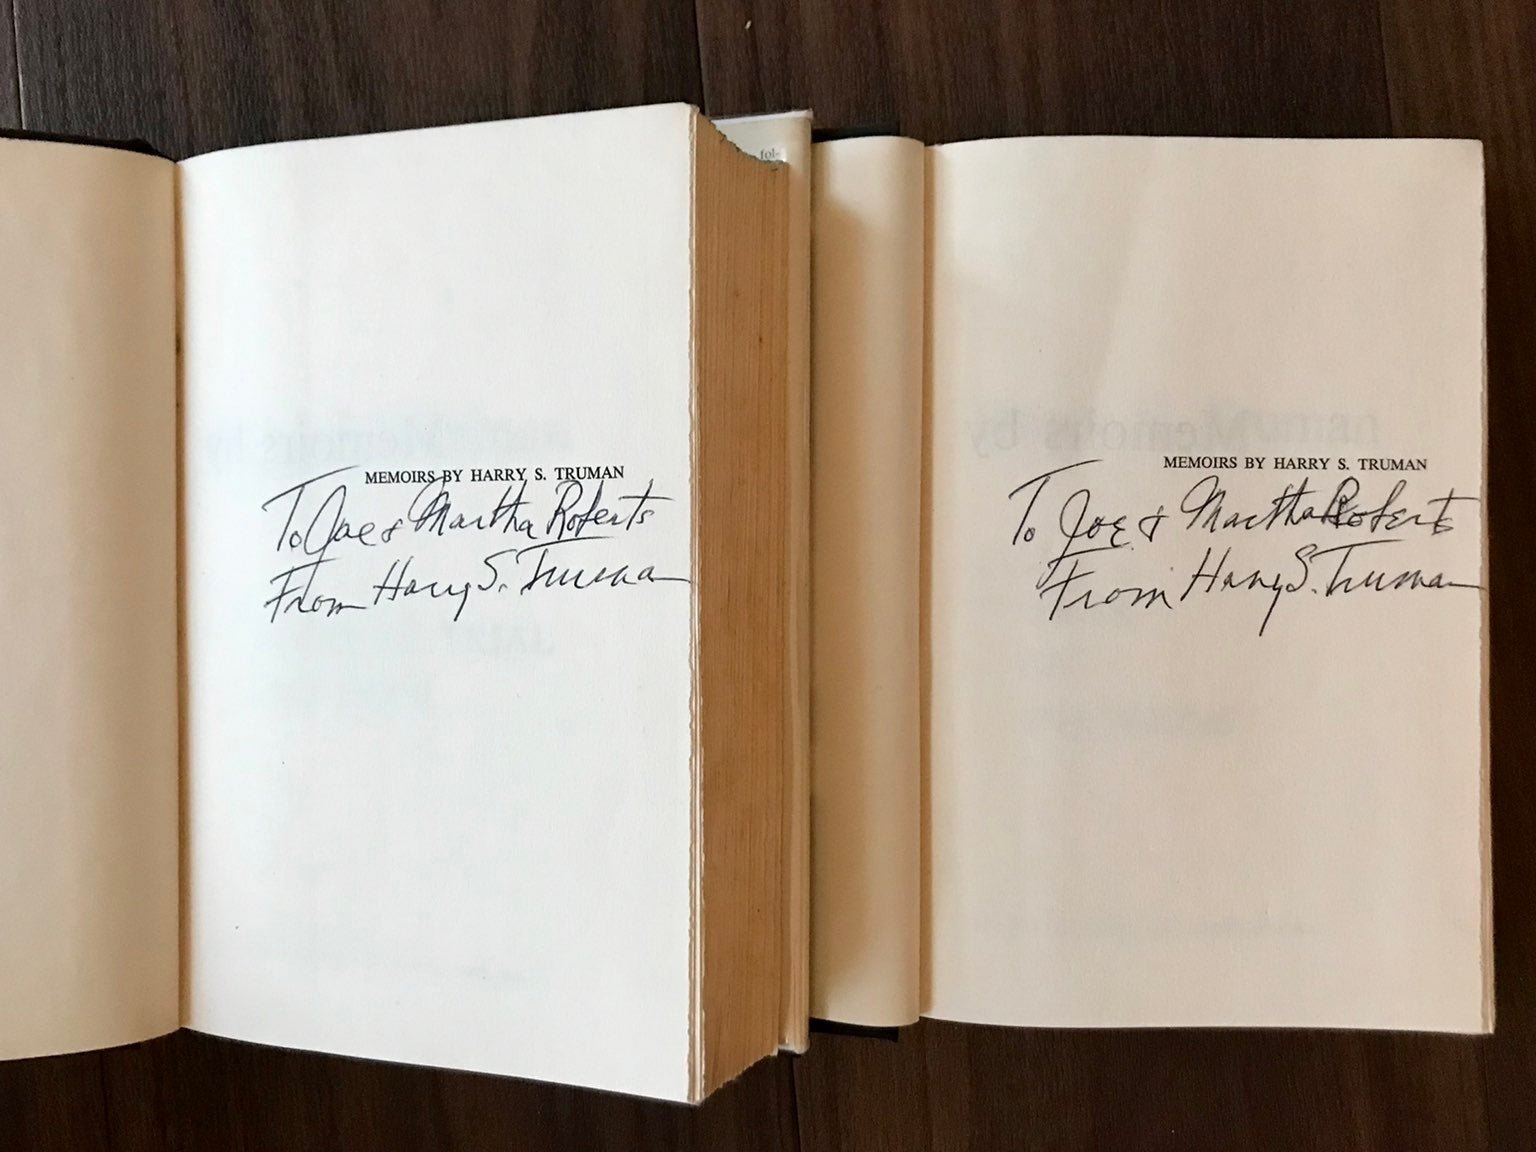 fol-
MEMOIRS BY HARRY S. TRUMAN
To Joe & Martha Roberts
From Harry S. Truman
MEMOIRS BY HARRY S. TRUMAN
To Joe & Martha Roberts
From Harry S. Truman